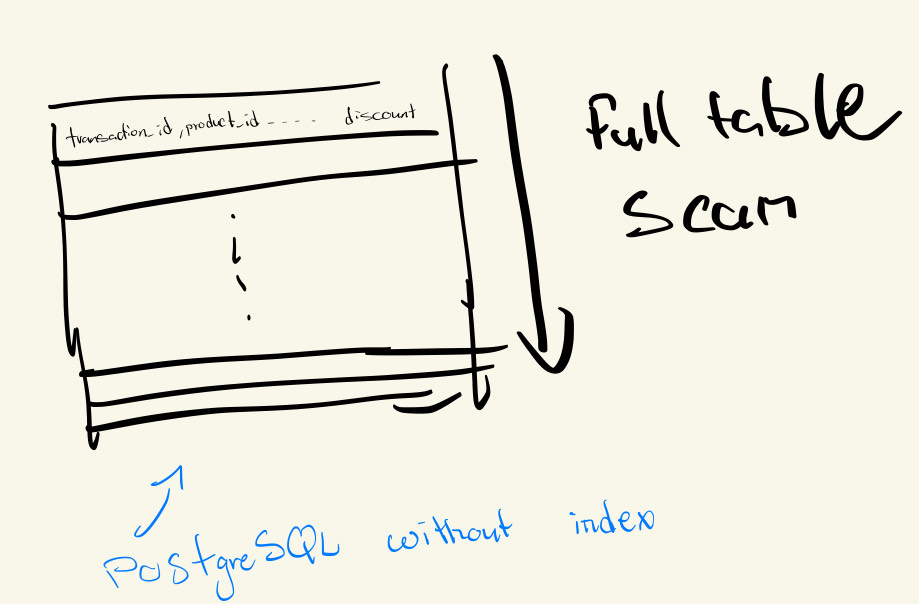 transaction_id, product_id - - - - discount
Full table
scan
PostgreSQL without index